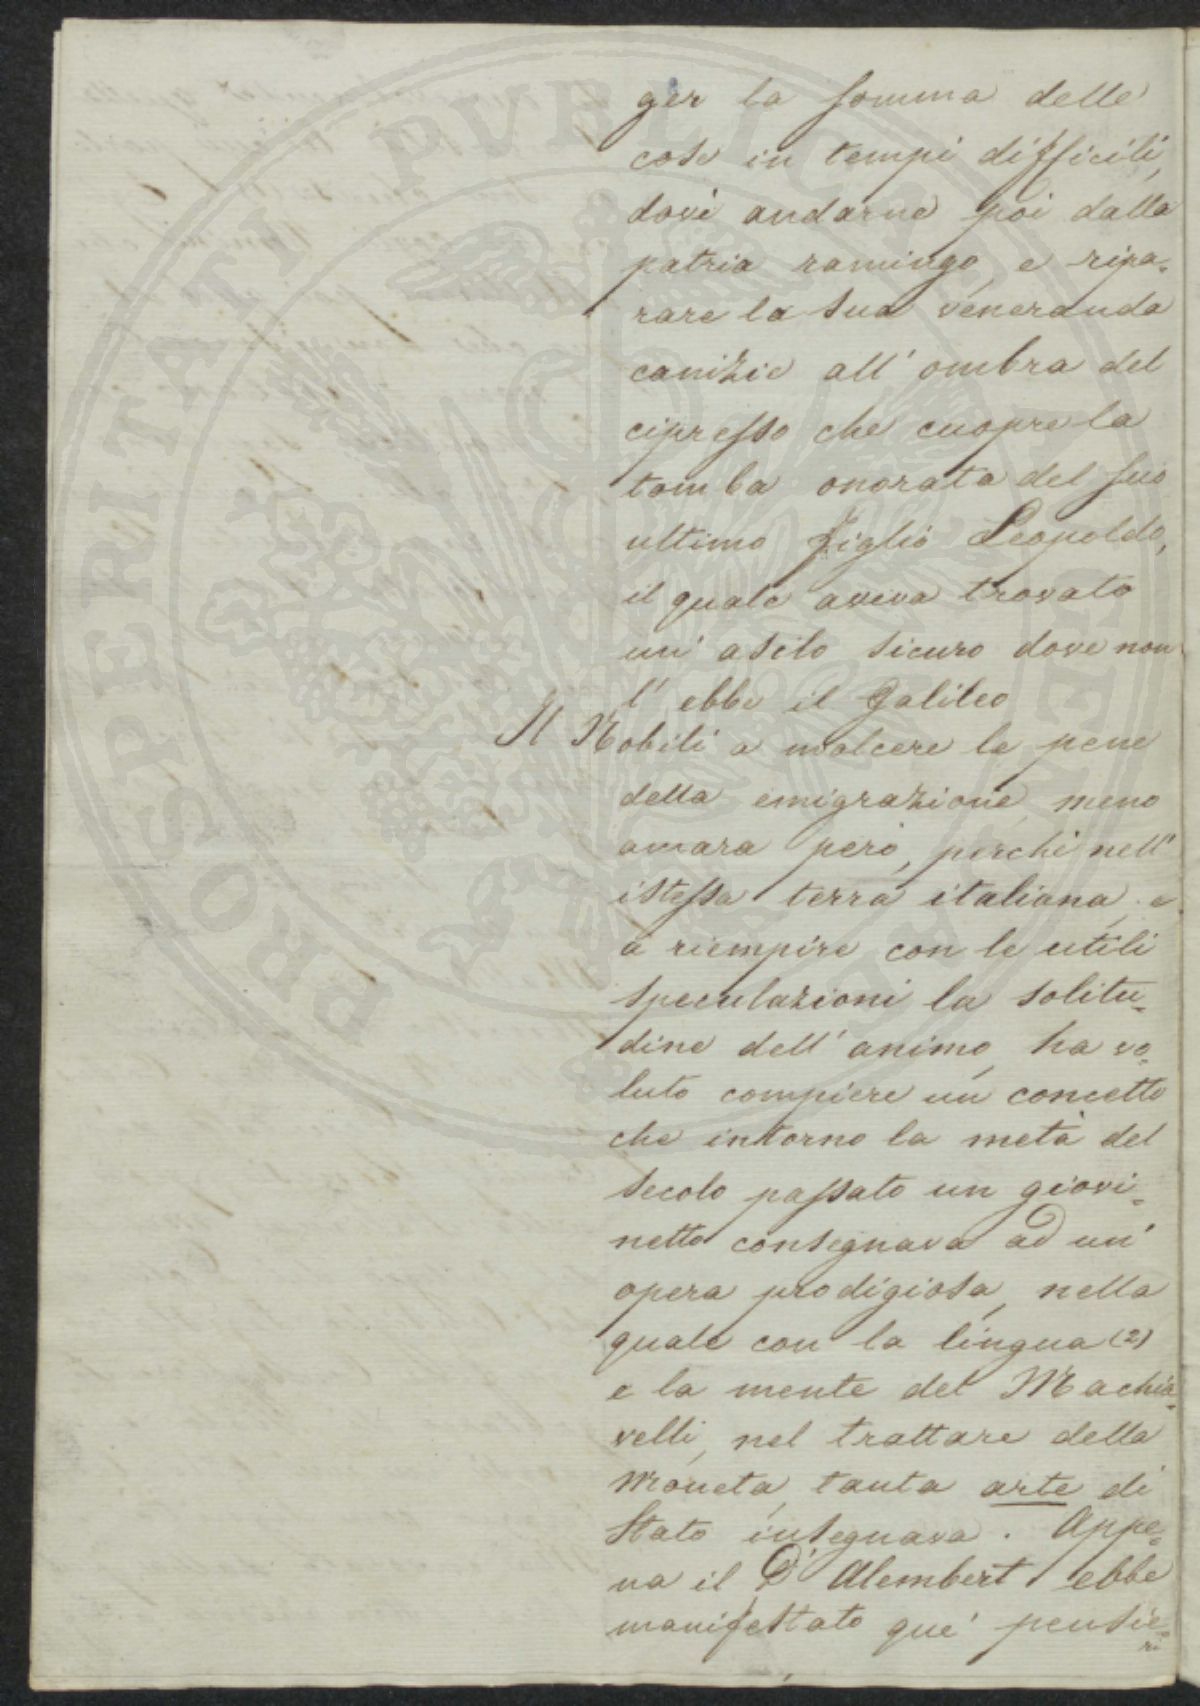 PROSPERITATI PVBLICAE AVGENDAE
ger la somma delle
cose in tempi difficili,
dové andarne poi dalla
patria ramingo, e ripa-
rare la sua veneranda
canizie all' ombra del
cipresso che cuopre la
tomba onorata del suo
ultimo figlio Leopoldo,
il quale aveva trovato
un' asilo sicuro dove non
l' ebbe il Galileo
Il Nobili a molcere le pene
della emigrazione, meno
amara però, perchè nell'
istessa terra italiana, e
a riempire con le utili
speculazioni la solitu-
dine dell' animo, ha vo-
luto compiere un concetto
che intorno la metà del
secolo passato un giovi-
netto consegnava ad un'
opera prodigiosa, nella
quale con la lingua (2)
e la mente del Machia-
velli, nel trattare della
Moneta, tanta arte di
Stato insegnava. Appe-
na il D' Alembert ebbe
manifestato que' pensie-
ri